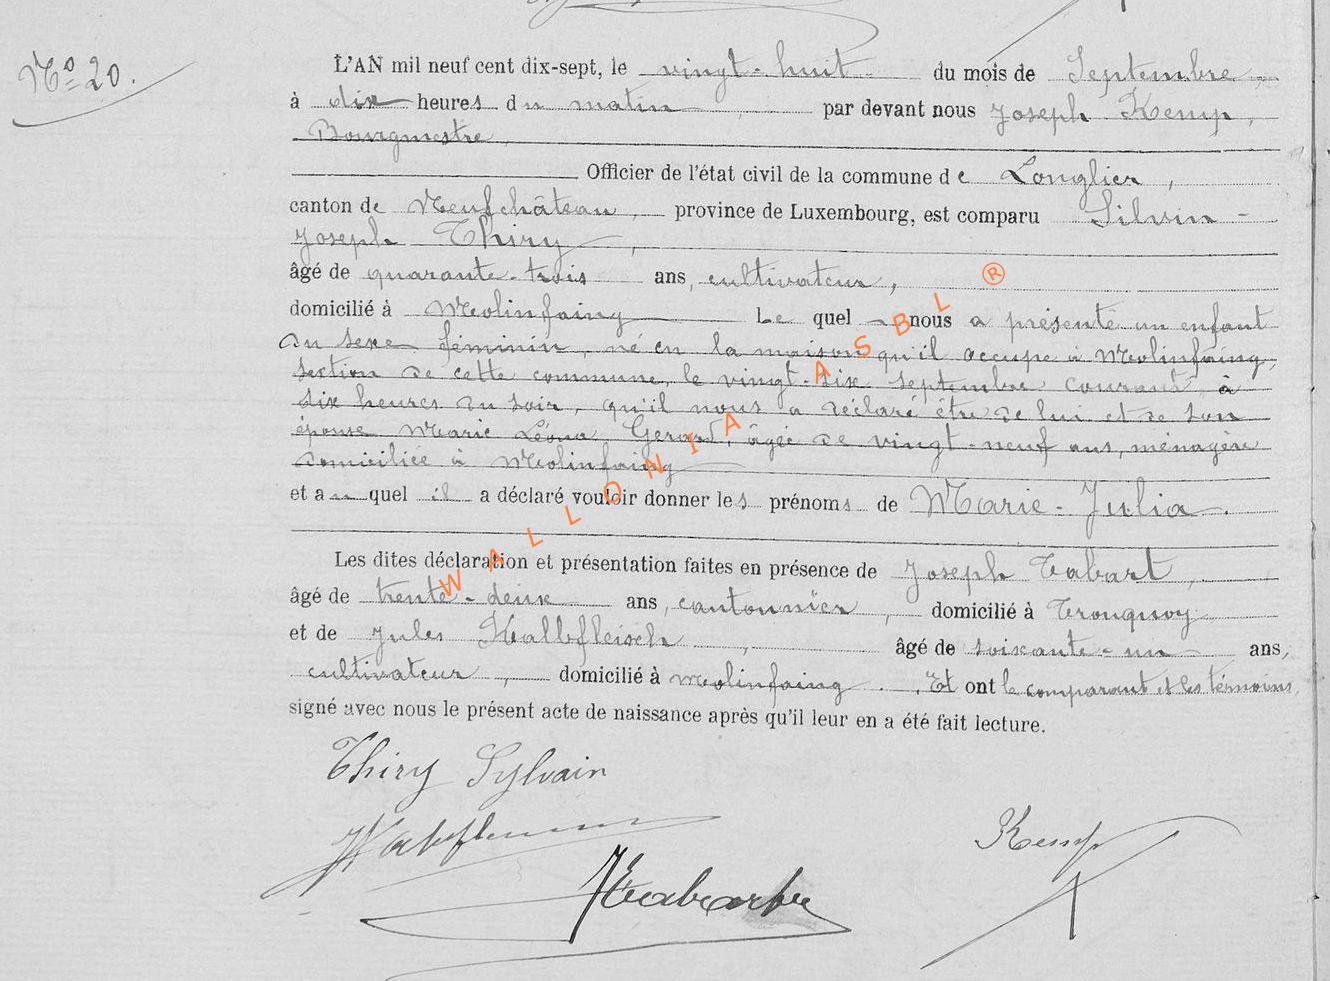 No 20.
L'AN mil neuf cent dix-sept, le vingt-huit du mois de Septembre,
à dix heures du matin par devant nous Joseph Kemp,
Bourgmestre,
Officier de l'état civil de la commune de Longlier,
canton de Neufchâteau, province de Luxembourg, est comparu Silvin-
Joseph Thiry,
âgé de quarante-trois ans, cultivateur,
domicilié à Molinfaing Le quel nous a présenté un enfant
du sexe féminin, né en la maison qu'il occupe à Molinfaing,
section de cette commune, le vingt-six septembre courant à
dix heures du soir, qu'il nous a déclaré être de lui et de son
épouse Marie Léona Gerard, âgée de vingt-neuf ans, ménagère
domiciliée à Molinfaing
et auquel il a déclaré vouloir donner les prénoms de Marie-Julia.
Les dites déclaration et présentation faites en présence de Joseph Tabart,
âgé de trente-deux ans, cantonnier, domicilié à Tronquoy
et de Jules Kalbfleisch, âgé de soixante-un ans,
cultivateur, domicilié à Molinfaing. Et ont le comparant et les témoins,
signé avec nous le présent acte de naissance après qu'il leur en a été fait lecture.
Thiry Sylvain
Kemp
WALLONIA ASBL ®